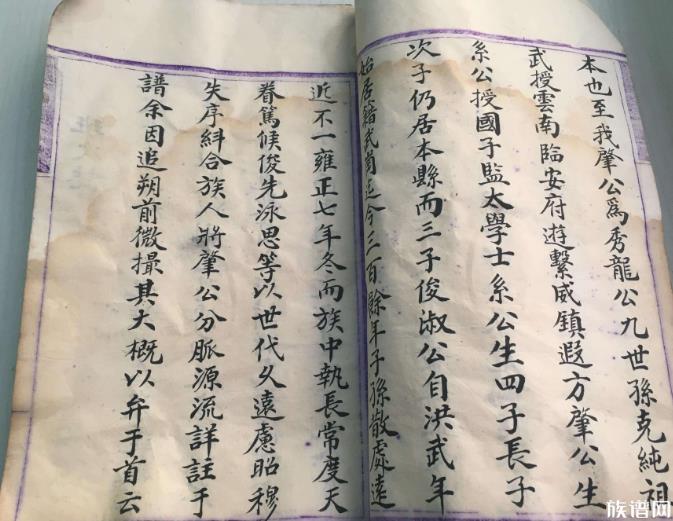 本也至我肇公爲秀龍公九世孫克純祖
武授雲南臨安府遊擊威鎮遐方肇公生
系公授國子監太學士系公生四子長子
次子仍居本縣而三子俊淑公自洪武年
始居籍武岡迄今三百餘年子孫散處遠
近不一雍正七年冬而族中執長常度天
眷篤候俊先泳思等以世代久遠慮昭穆
失序糾合族人將肇公分脈源流詳註于
譜余因追朔前微撮其大概以弁于首云
族谱网